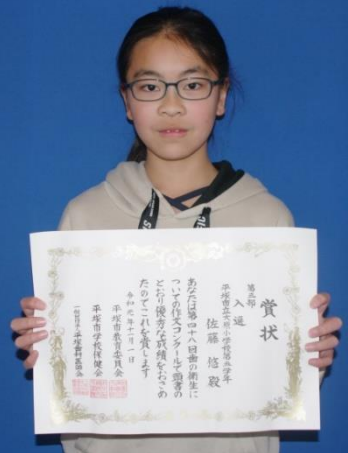 賞状
第五部
入選
平塚市立大原小学校第五学年
佐藤 悠 殿
あなたは第四十八回歯の衛生に
ついての作文コンクールで頭書の
とおり優秀な成績をおさめ
たのでこれを賞します
令和元年十一月一日
平塚市教育委員会
平塚市学校保健会
一般社団法人平塚歯科医師会